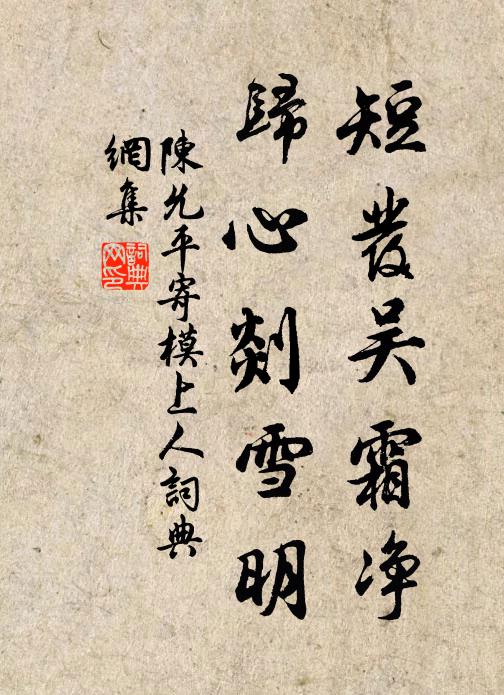 短發吴霜净
歸心剡雪明
陳允平寄模上人詞典
網集
詞典网印